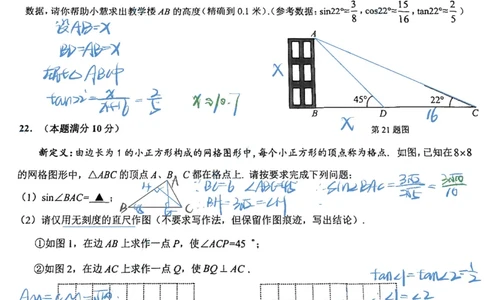 数据,请你帮助小慧求出教学楼AB的高度(精确到0.1米).(参考数据:sin22°≈3/8,cos22°≈15/16,tan22°≈2/5)
设AB=x
BD=AB=x
在Rt△ABC中
tan22°=x/(x+16)=2/5
x≈10.7
A
x
45°
22°
B
D
C
x
16
第21题图
22. (本题满分10分)
新定义:由边长为1的小正方形构成的网格图形中,每个小正方形的顶点称为格点. 如图,已知在8×8
的网格图形中,△ABC的顶点A、B、C都在格点上. 请按要求完成下列问题:
(1) sin∠BAC= ▲ ;
A
4
B
6
C
∵BC=6 ∠ABC=45
∴BH=3√2=CH
∴sin∠BAC=3√2/2√5=3√10/10
(2) 请仅用无刻度的直尺作图(不要求写作法,但保留作图痕迹,写出结论).
①如图1,在边AB上求作一点P,使∠ACP=45°;
②如图2,在边AC上求作一点Q,使BQ⊥AC.
tan∠1=tan∠2=1/2
∴∠1=∠2